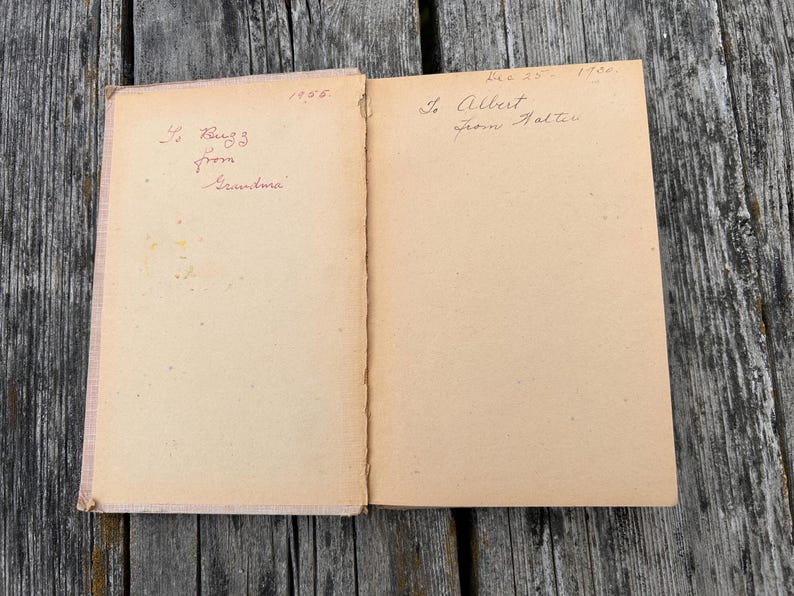 1955.
To Bugz
from
Grandma
Dec 25- 1930.
To Albert
from Walter